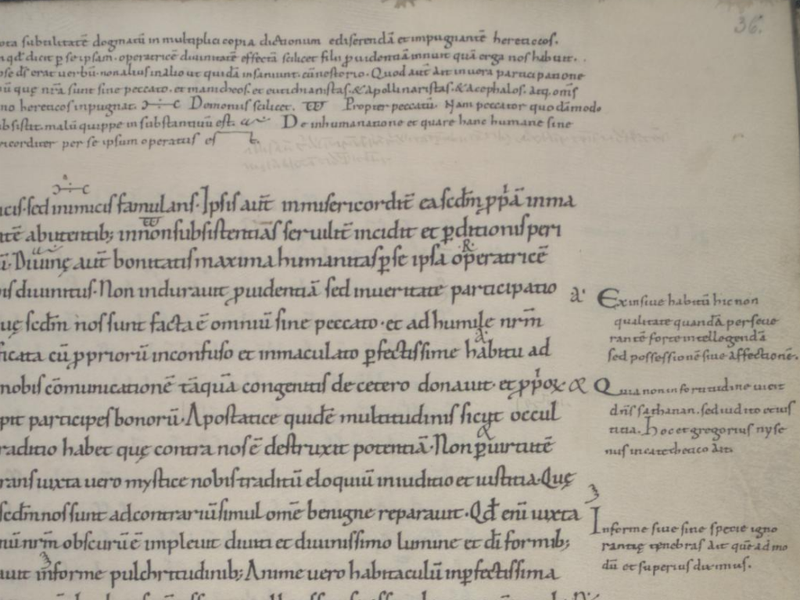 36.
ota subtilitatē dogmatū in multiplici copia dictionum ediserendā et impugnantē hereticos.
qđ dicit p se ipsam. operatricē divinitatē effectā scilicet filii ꝓvidentiā innuit quā erga nos habuit.
ose ds̄ erat verbū. non alius in alio ut quidā insaniunt. cū nestorio. Quod aut̄ ait in vera participatione
sunt sine peccato. et manicheos. et eutichianistas. & Apollinaristas. & Acephalos. Atq; om̄s
no hereticos inpugnat. Demonus scilicet. Propter peccatū. Nam peccator quodāmodo
ubsistit. malū quippe in substantivū est. De inhumanatione et quare hanc humane sine
ricorditer per se ipsum operatus
icis. sed inimicis famulans. Ipsis aut̄ inmisericorditē ea scdm̄ ꝓpā inma
tē abutentib; in non subsistentiās serviliē incidit et ꝑditionis peri
Divinę aut̄ bonitatis maxima humanitas ꝑ se ipsa operatricē
is divinitus. Non induravit ꝓvidentiā sed in veritate participatio
uę scdm̄ nos sunt facta ē omniū sine peccato. et ad humile nr̄m
ficata cū ꝓpriorū inconfuso et immaculato ꝑfectissime habitu ad
nobis cōmunicationē tāqua congenitis de cetero donavit. et
pit participes bonorū. Apostatice quidē multitudinis sicut occul
raditio habet quę contra nos ē destruxit potentiā. Non ꝑ virtutē
rans iuxta vero mystice nobis traditū eloquiū in iuditio et iustitia. Quę
scdm̄ nos sunt ad contrariū simul omē benigne reparavit. Qđ enī iuxta
nū nr̄m obscurū ē implevit diviti et divinissimo lumine et di formib;
vit informe pulchritudinib; Anime vero habitaculū in ꝑfectissima
Ex insius habitū hic non
qualitatē quandā perseve
rantē forte intellegendā
sed possessionē sive affectionē.
Quia non in fortitudine vicit
dn̄s sathanan. sed iuditio et ius
titia. Hoc et gregorius nyse
nus in catethetico ait.
Informe sive sine specie igno
rantię tenebras ait quēadmo
dū et superius diximus.